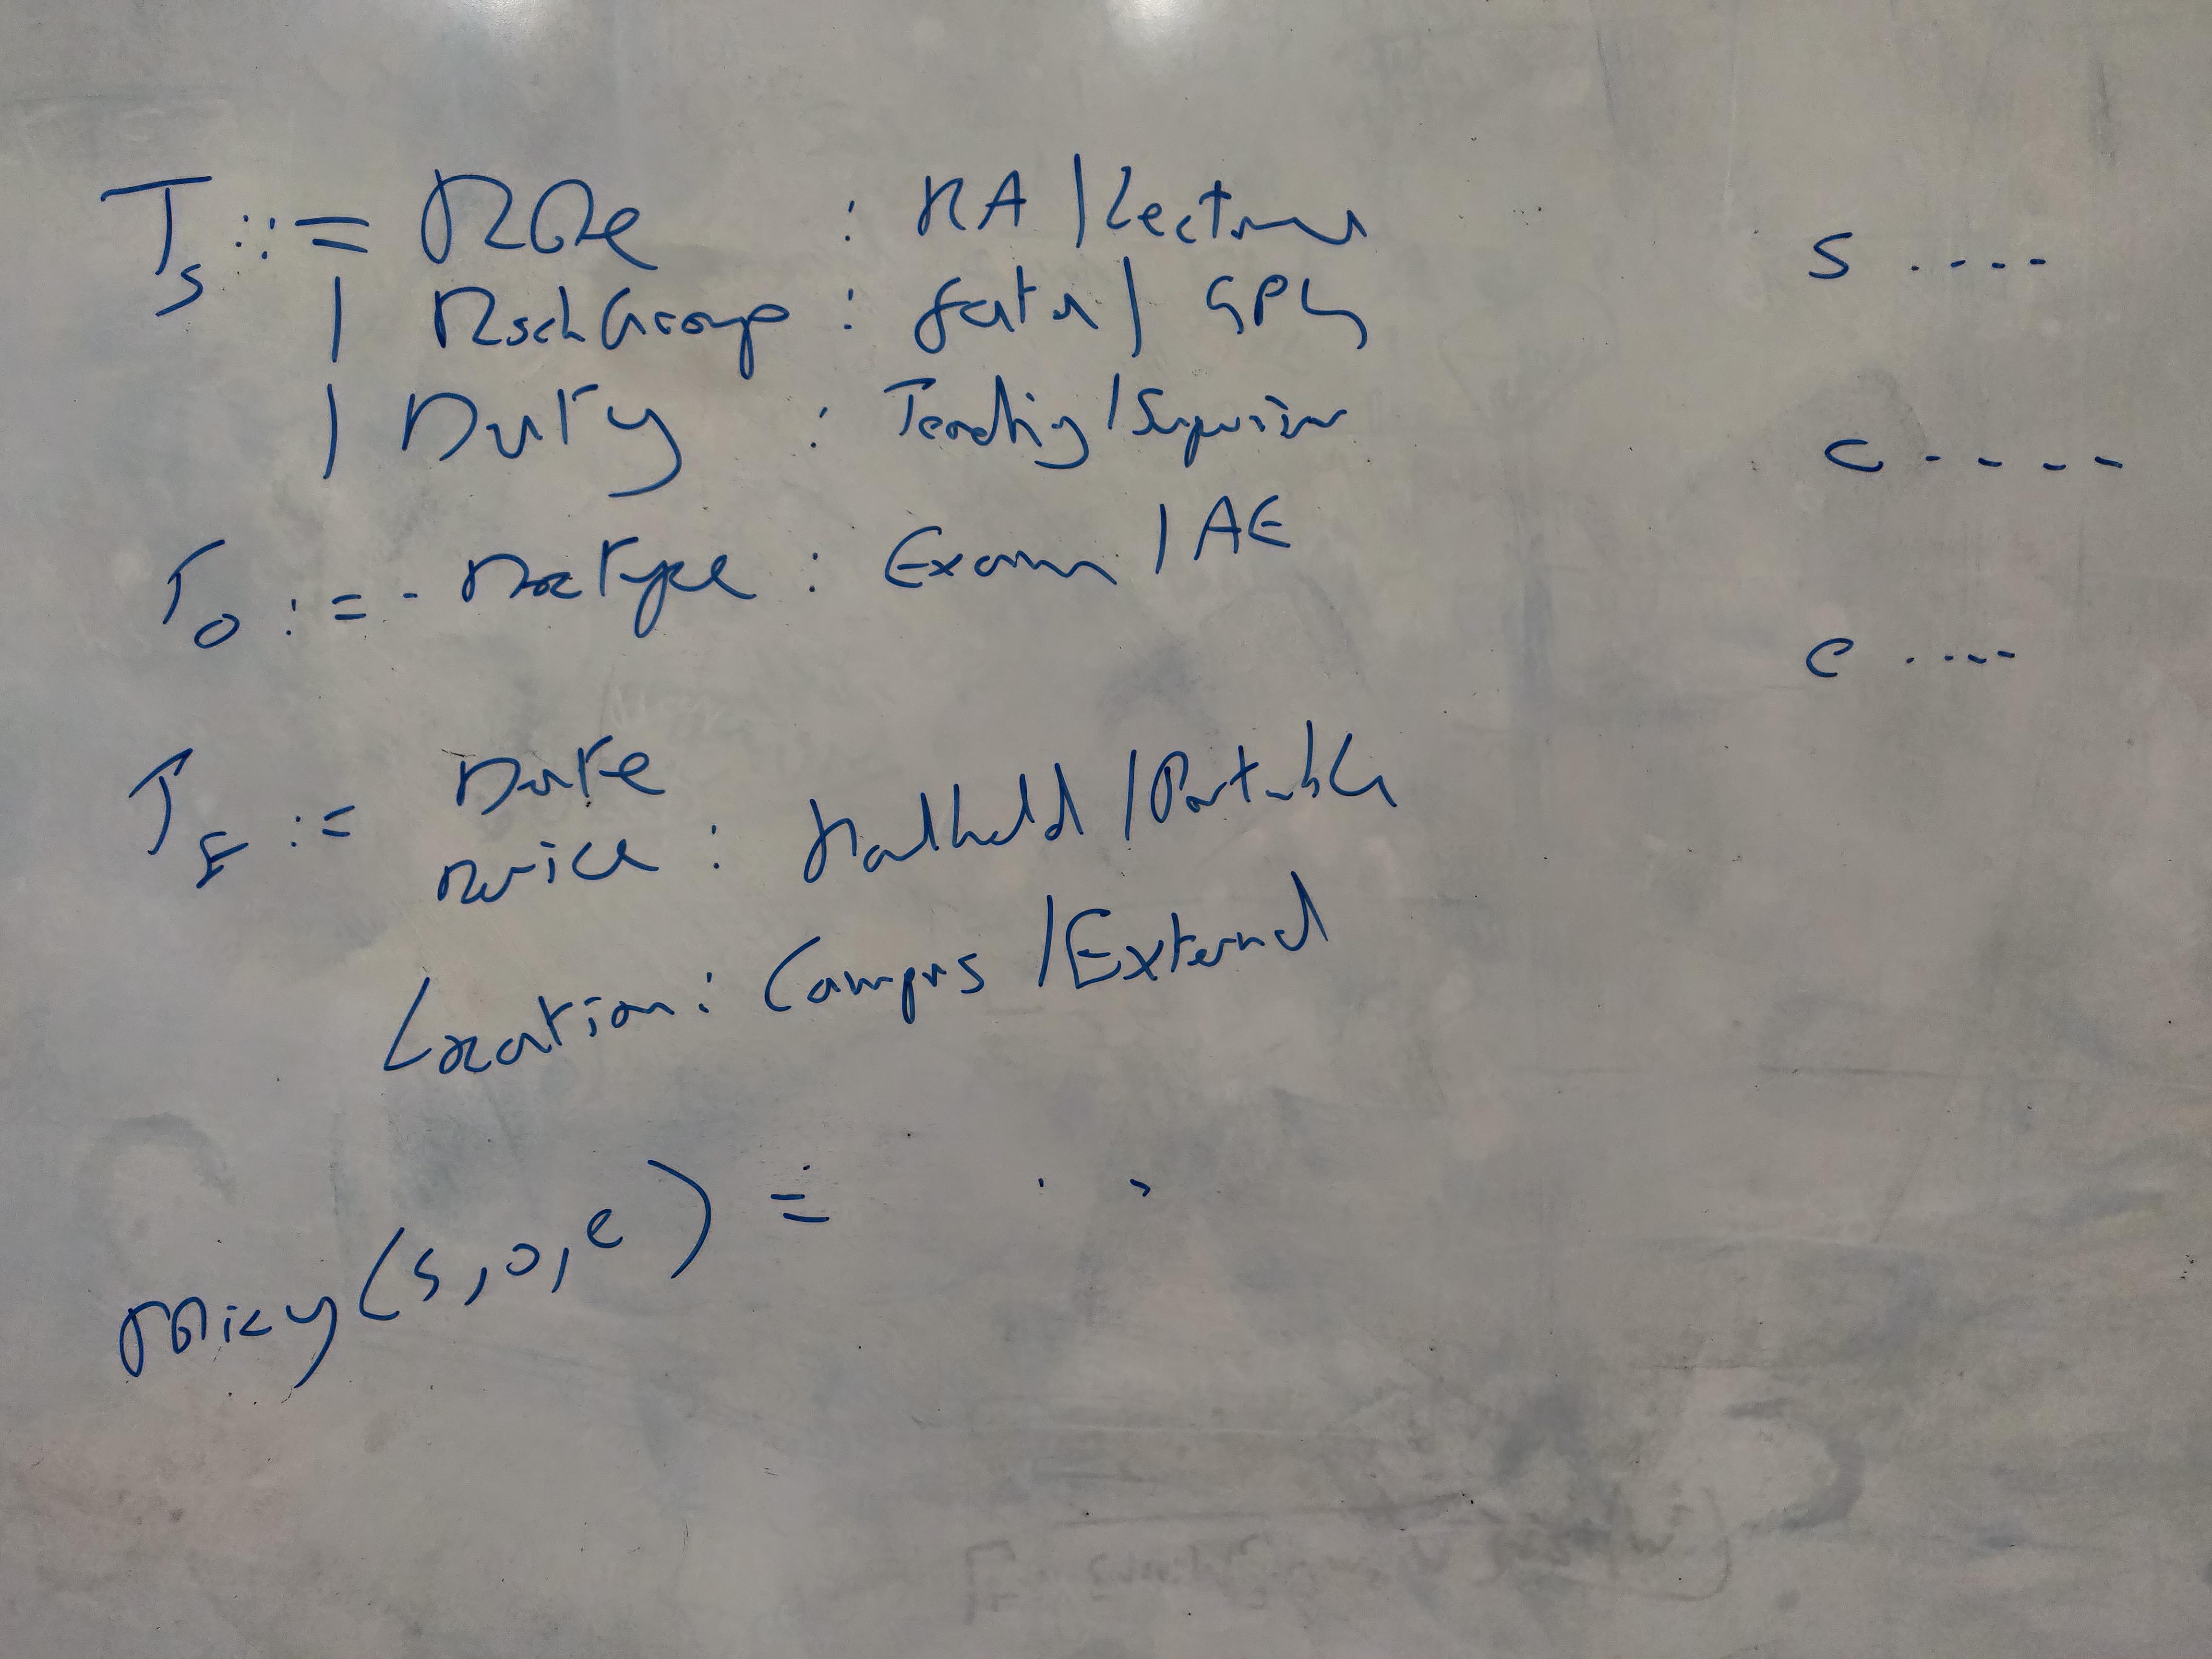 T_S ::= Role : RA / Lecturer
| RschGroup : fata / GPLS
| Duty : Teaching / Supervisor
T_O := - Doctype : Exam / AE
T_E := Date
Device : Handheld / Portable
Location : Campus / External
Policy (s, o, e) =
s ....
c ....
e ....